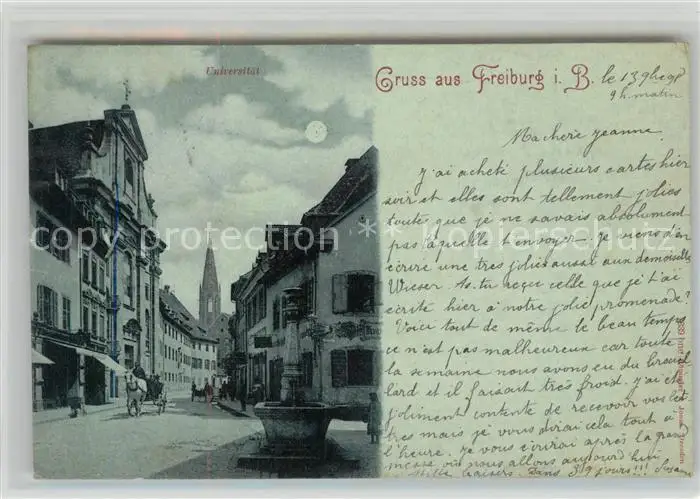 Universität
Gruss aus Freiburg i. B.
le 13 9bre 98
9 h. matin
Ma chérie Jeanne.
J'ai acheté plusieurs cartes hier
soir et elles sont tellement jolies
toute que je ne savais absolument
pas laquelle t'envoyer. Je viens d'en
écrire une très jolie aussi aux demoiselles
Wieser. As-tu reçu celle que je t'ai
écrite hier à notre jolie promenade?
Voici tout de même le beau temps
ce n'est pas malheureux car toute
la semaine nous avons eu du brouil
lard et il faisait très froid. J'ai été
joliment contente de recevoir vos let
tres mais je vous dirai cela tout à
l'heure. Je vous écrirai après la grand
messe où nous allons aujourd'hui
Mille baisers. Dans 39 jours!!! Susanne